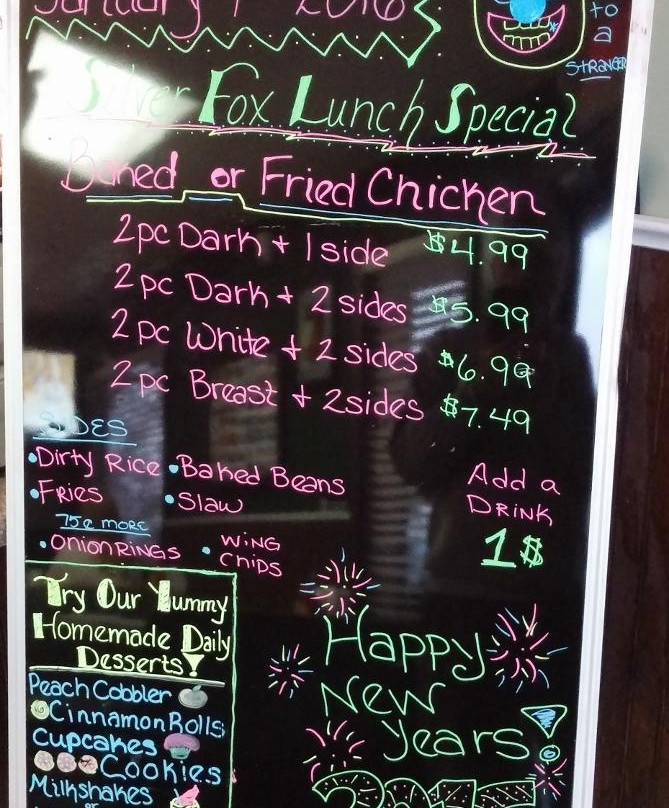 January 1 2016
to
a
STRANGER
Silver Fox Lunch Special
Baked or Fried Chicken
2pc Dark + 1 side $4.99
2pc Dark + 2 sides $5.99
2pc White + 2 sides $6.99
2pc Breast + 2 sides $7.49
SIDES
•Dirty Rice •Baked Beans
•Fries •Slaw
75¢ more
•Onion Rings •Wing Chips
Add a
Drink
1$
Try Our Yummy
Homemade Daily
Desserts!
Peach Cobbler
Cinnamon Rolls
Cupcakes
Cookies
Milkshakes
or
Happy
New
Years!